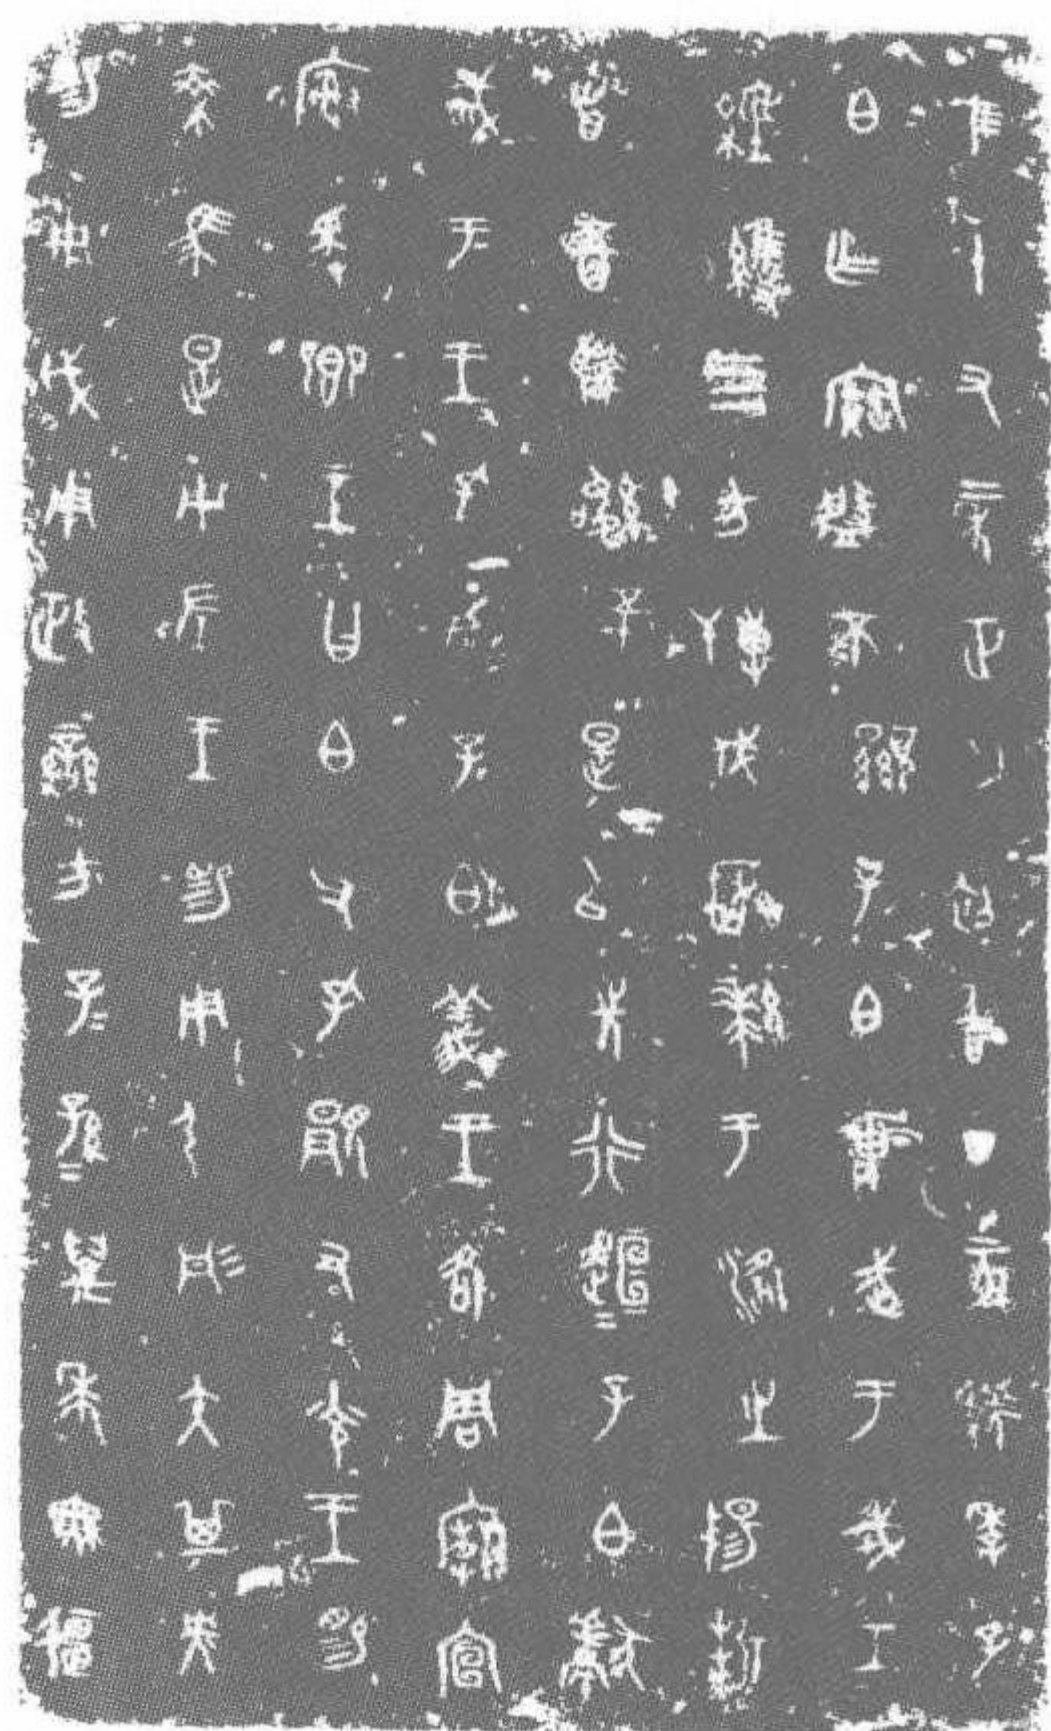 隹十又二年正月初吉丁亥虢季子
白乍寶盤不顯子白壯武于戎工
經維四方搏伐玁狁于洛之陽折
首五百執訊五十是以先行桓桓子白獻
聝于王王孔加子白義王各周廟宣
榭爰鄉王曰白父孔顯又光王賜
乘馬是用左王賜用弓彤矢其央
賜用戉用政蠻方子子孫孫萬年無疆